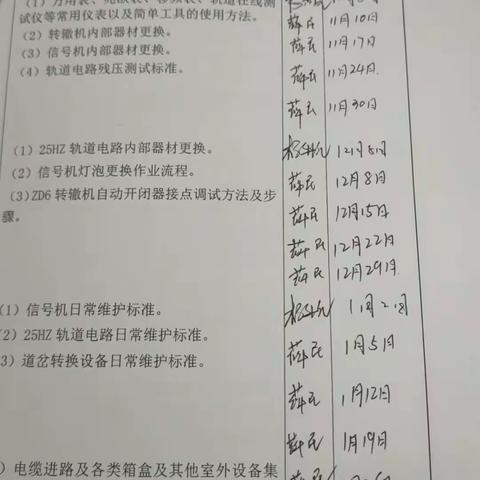 (1) 万用表、兆欧表、移频表、轨道在线测
试仪等常用仪表以及简单工具的使用方法。
(2) 转辙机内部器材更换。
(3) 信号机内部器材更换。
(4) 轨道电路残压测试标准。
薛民 11月10日
薛民 11月17日
薛民 11月24日
薛民 11月30日
(1) 25HZ 轨道电路内部器材更换。
(2) 信号机灯泡更换作业流程。
(3) ZD6 转辙机自动开闭器接点调试方法及步
骤。
12月5日
薛民 12月8日
薛民 12月15日
薛民 12月22日
薛民 12月29日
(1) 信号机日常维护标准。
(2) 25HZ 轨道电路日常维护标准。
3) 道岔转换设备日常维护标准。
1月2日
薛民 1月5日
薛民 1月12日
薛民 1月19日
) 电缆进路及各类箱盒及其他室外设备集